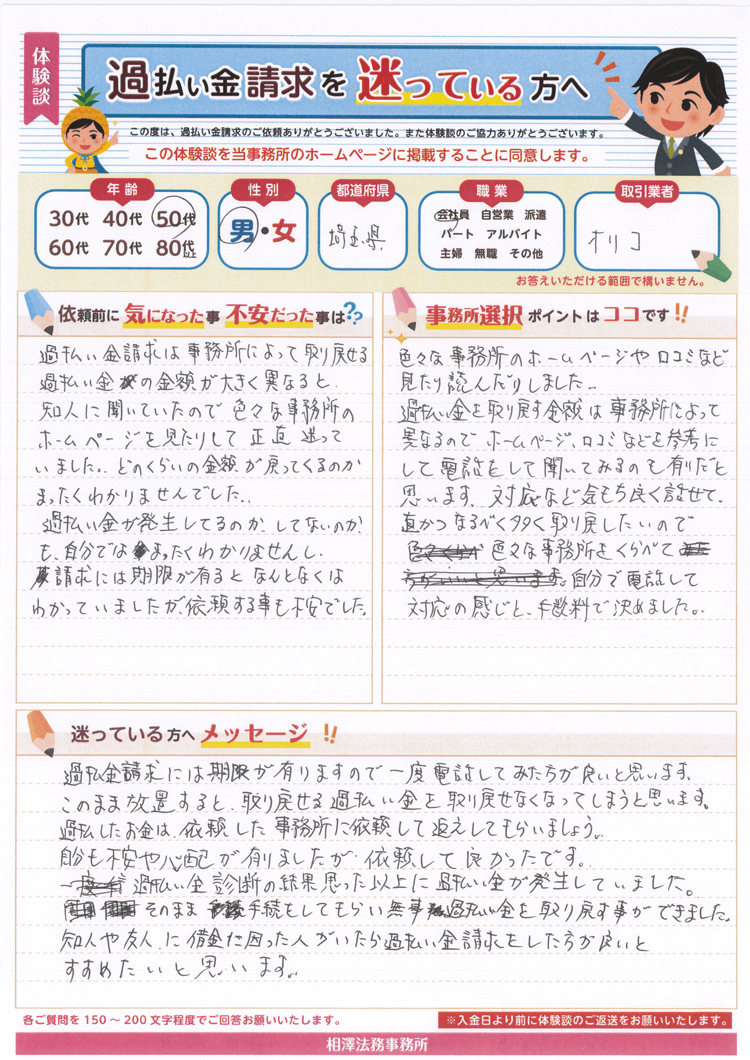 体験談
過払い金請求を迷っている方へ
この度は、過払い金請求のご依頼ありがとうございました。また体験談のご協力ありがとうございます。
この体験談を当事務所のホームページに掲載することに同意します。
年齢
30代 40代 50代
60代 70代 80代以上
性別
男・女
都道府県
埼玉県
職業
会社員 自営業 派遣
パート アルバイト
主婦 無職 その他
取引業者
オリコ
お答えいただける範囲で構いません。
依頼前に気になった事 不安だった事は??
過払い金請求は事務所によって取り戻せる
過払い金の金額が大きく異なると、
知人に聞いていたので色々な事務所の
ホームページを見たりして正直迷って
いました。どのくらいの金額が戻ってくるのか
まったくわかりませんでした。
過払い金が発生してるのか、してないのか、
も、自分ではまったくわかりませんし、
請求には期限が有るとなんとなくは
わかっていましたが依頼する事も不安でした。
事務所選択ポイントはココです!!
色々な事務所のホームページや口コミなど
見たり読んだりしました。
過払い金を取り戻す金額は事務所によって
異なるのでホームページ、口コミなどを参考に
して電話をして聞いてみるのも有りだと
思います。対応など気もち良く話せて、
直かつなるべく多く取り戻したいので
色々な事務所をくらべて
自分で電話して
対応の感じと、手数料で決めました。
迷っている方へメッセージ!!
過払金請求には期限が有りますので一度電話してみた方が良いと思います。
このまま放置すると、取り戻せる過払い金を取り戻せなくなってしまうと思います。
過払したお金は、依頼した事務所に依頼して返えしてもらいましょう。
自分も不安や心配が有りましたが、依頼して良かったです。
過払い金診断の結果思った以上に過払い金が発生していました。
そのまま手続をしてもらい無事過払い金を取り戻す事ができました。
知人や友人に借金に困った人がいたら過払い金請求をした方が良いと
すすめたいと思います。
各ご質問を150～200文字程度でご回答お願いいたします。
※入金日より前に体験談のご返送をお願いいたします。
相澤法務事務所